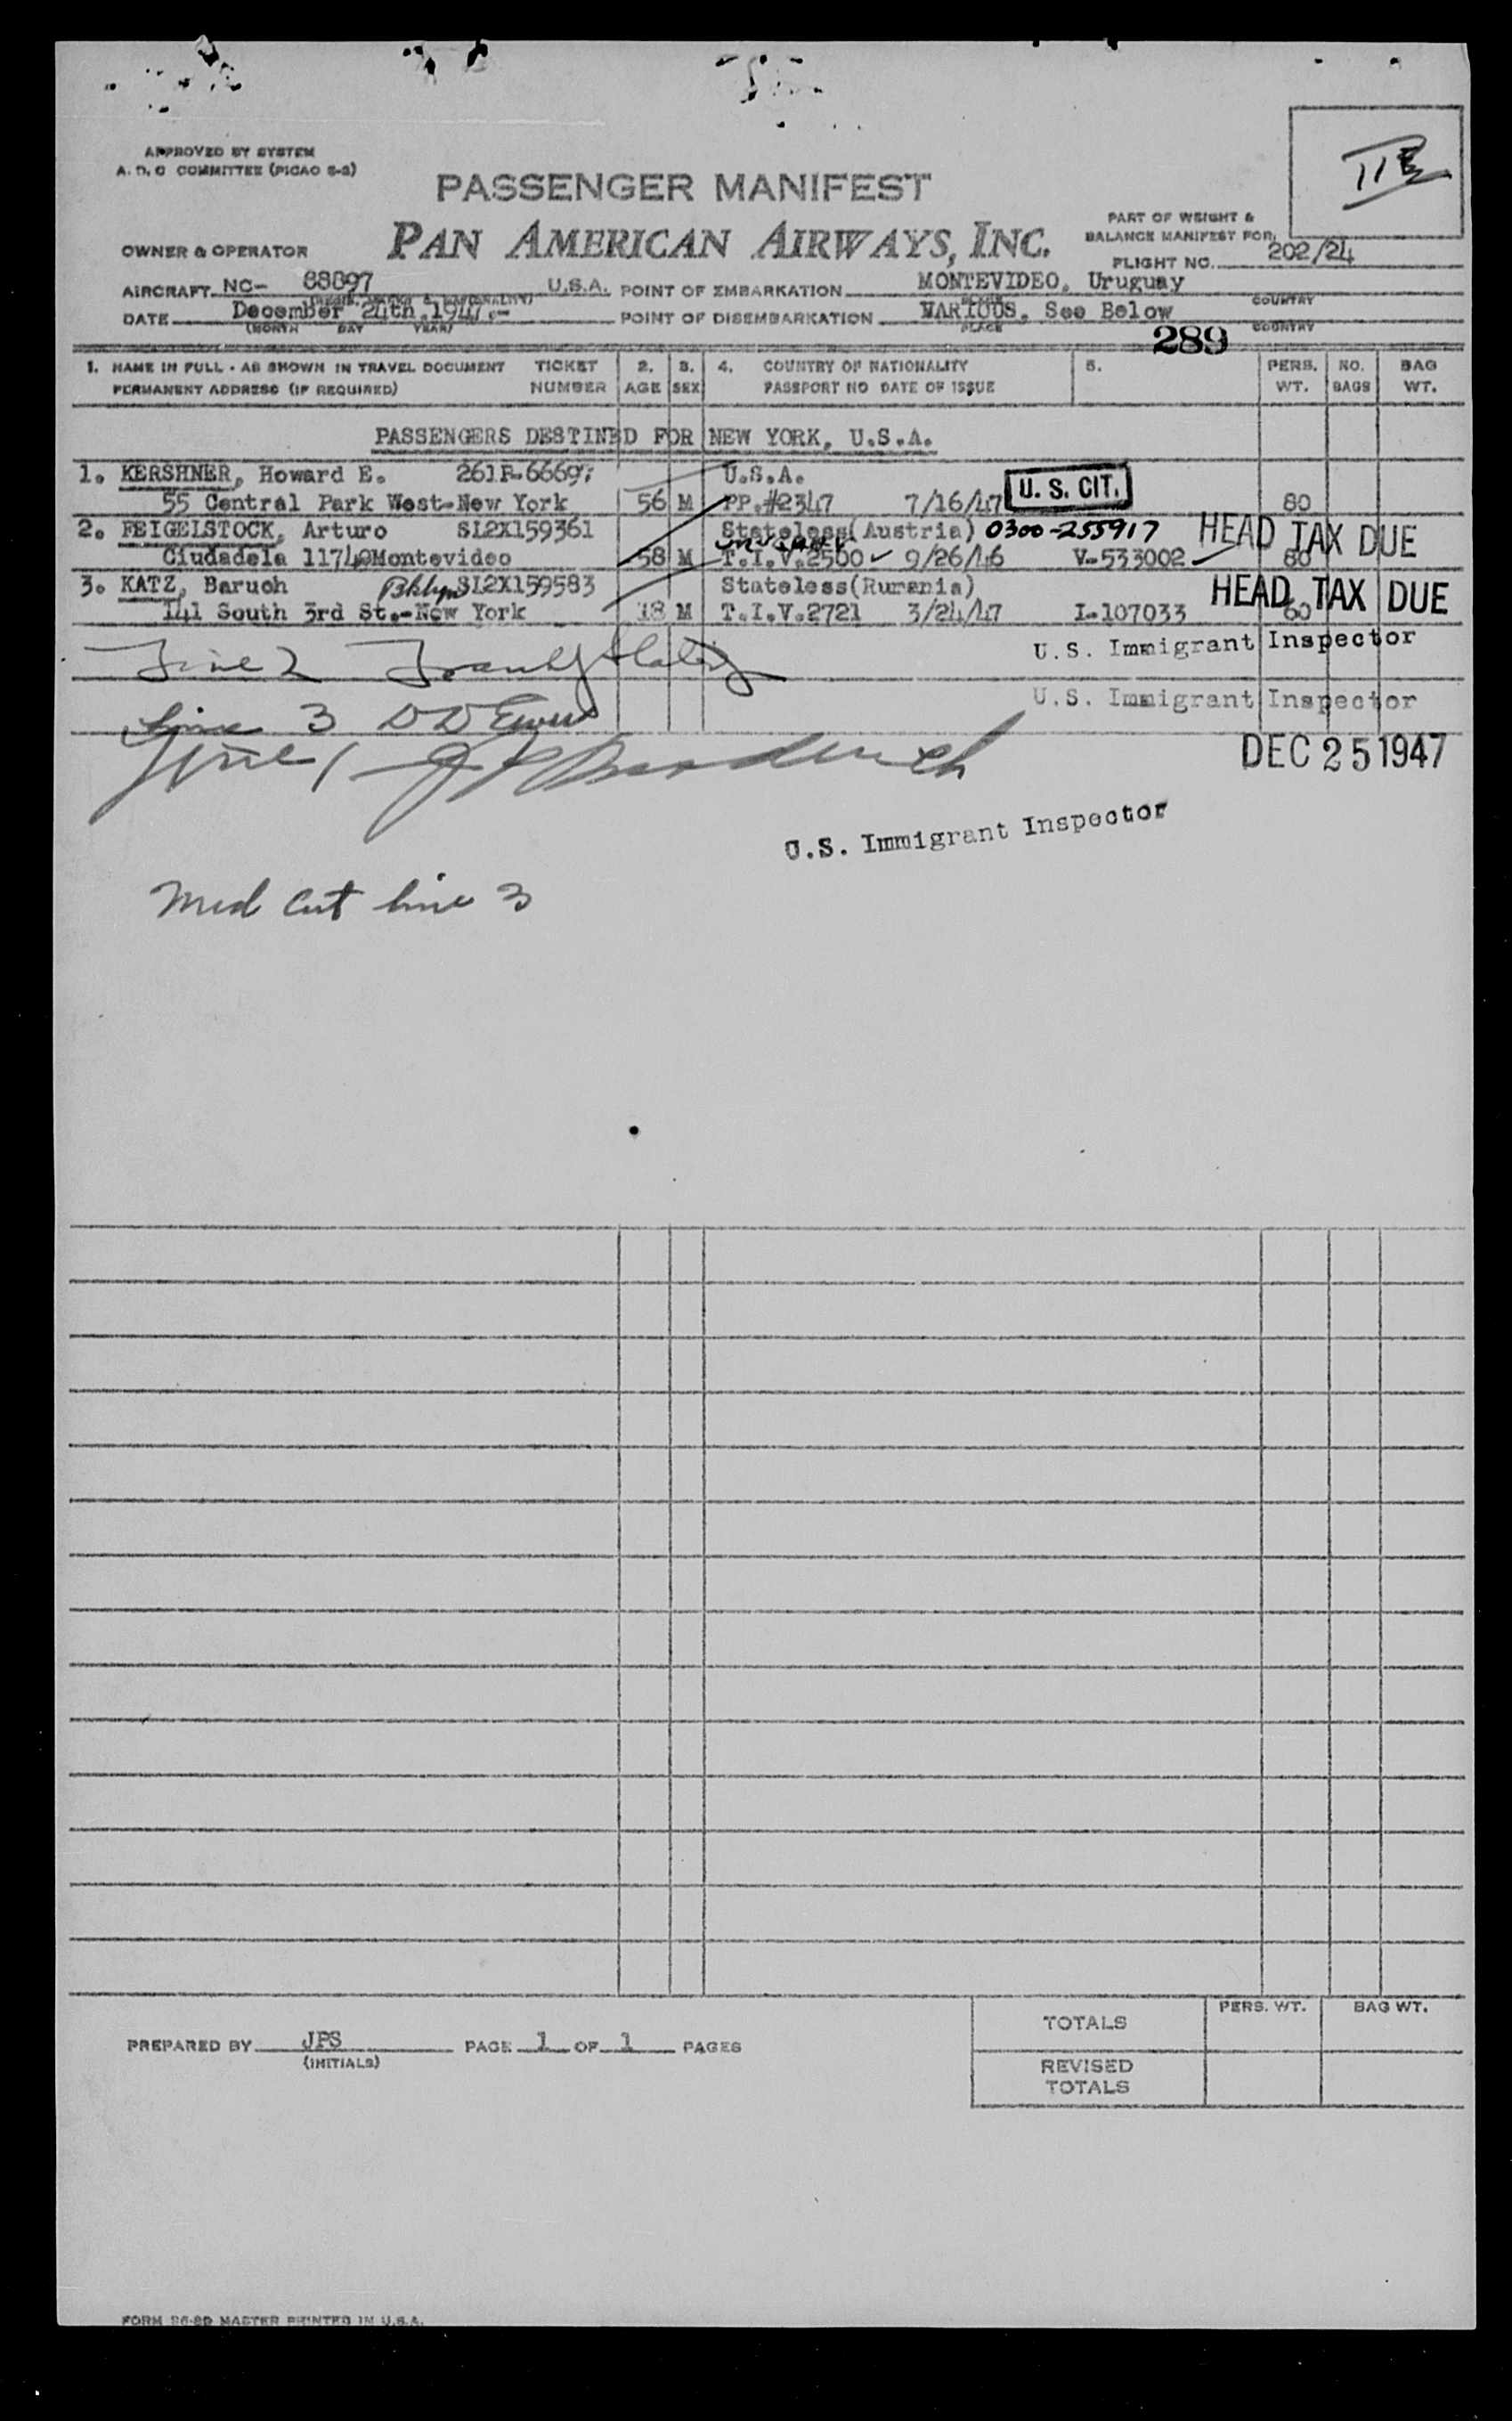 APPROVED BY SYSTEM
A. D. C COMMITTEE (PICAO S-2)
PASSENGER MANIFEST
PAN AMERICAN AIRWAYS, INC.
OWNER & OPERATOR
PART OF WEIGHT &
BALANCE MANIFEST FOR,
FLIGHT NO. 202/24
AIRCRAFT NC- 88897 U.S.A. POINT OF EMBARKATION MONTEVIDEO, Uruguay
DATE December 24th, 1947.- POINT OF DISEMBARKATION VARIOUS, See Below
(MONTH DAY YEAR) PLACE COUNTRY
289
1. NAME IN FULL - AS SHOWN IN TRAVEL DOCUMENT TICKET 2. 3. 4. COUNTRY OF NATIONALITY 5. PERS. NO. BAG
PERMANENT ADDRESS (IF REQUIRED) NUMBER AGE SEX PASSPORT NO DATE OF ISSUE WT. BAGS WT.
PASSENGERS DESTINED FOR NEW YORK, U.S.A.
1. KERSHNER, Howard E. 261R-66697 U.S.A.
55 Central Park West-New York 56 M PP.#2347 7/16/47 U. S. CIT. 80
2. FEIGELSTOCK, Arturo SL2X159361 Stateless(Austria) 0300-255917 HEAD TAX DUE
Ciudadela 1174 Montevideo 58 M T.I.V.2500 9/26/46 V-533002 80
3. KATZ, Baruch Bklyn SL2X159583 Stateless(Rumania) HEAD TAX DUE
141 South 3rd St.-New York 18 M T.I.V.2721 3/24/47 I-107033 60
Line 2
U.S. Immigrant Inspector
Line 3
U.S. Immigrant Inspector
Line 1
DEC 25 1947
U.S. Immigrant Inspector
Med Cert line 3
TOTALS PERS. WT. BAG WT.
PREPARED BY JPS PAGE 1 OF 1 PAGES
(INITIALS)
REVISED
TOTALS
FORM 26-80 MASTER PRINTED IN U.S.A.